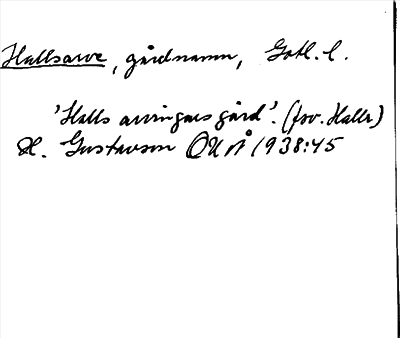 Hallsarve, gårdnamn, Gotl. l.
'Halls arvingars gård'. (fsv. Halle)
H. Gustavson OUÅ 1938:45